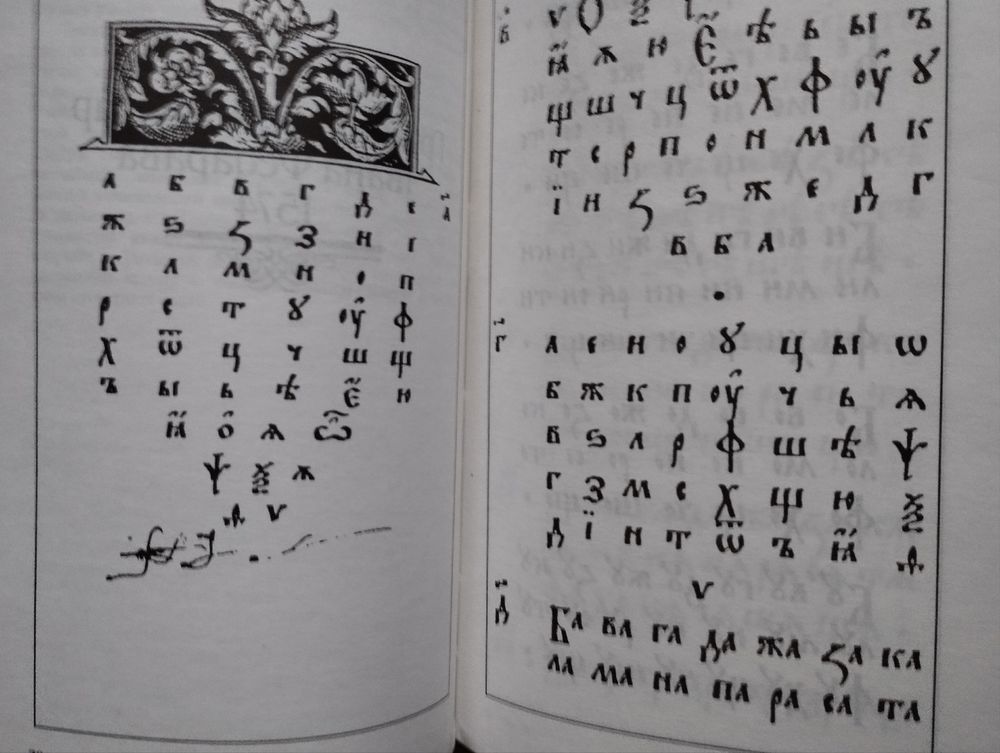 а б в г д є
ж ѕ ꙁ з и і
к л м н о п
р с т ꙋ оу ф
х ѿ ц ч ш щ
ъ ы ь ѣ є ю
ꙗ о ѧ ѽ
ѱ ѯ ѫ
ѳ ѵ
а҃
в҃
ѵ ѯ
ꙗ ѧ ю є ѣ ь ы ъ
щ ш ч ц ѿ х ф оу ꙋ
т с р п о н м л к
ї и ꙁ ѕ ж є д г
в б а
г҃
а є и о ꙋ ц ы ѡ
б ж к п оу ч ь ѧ
в ѕ л р ф ш ѣ ѱ
г з м с х щ ю ѯ
д ї н т ѿ ъ ꙗ ѳ
ѵ
д҃
Ба ва га да жа ꙁа ка
ла ма на па ра са та